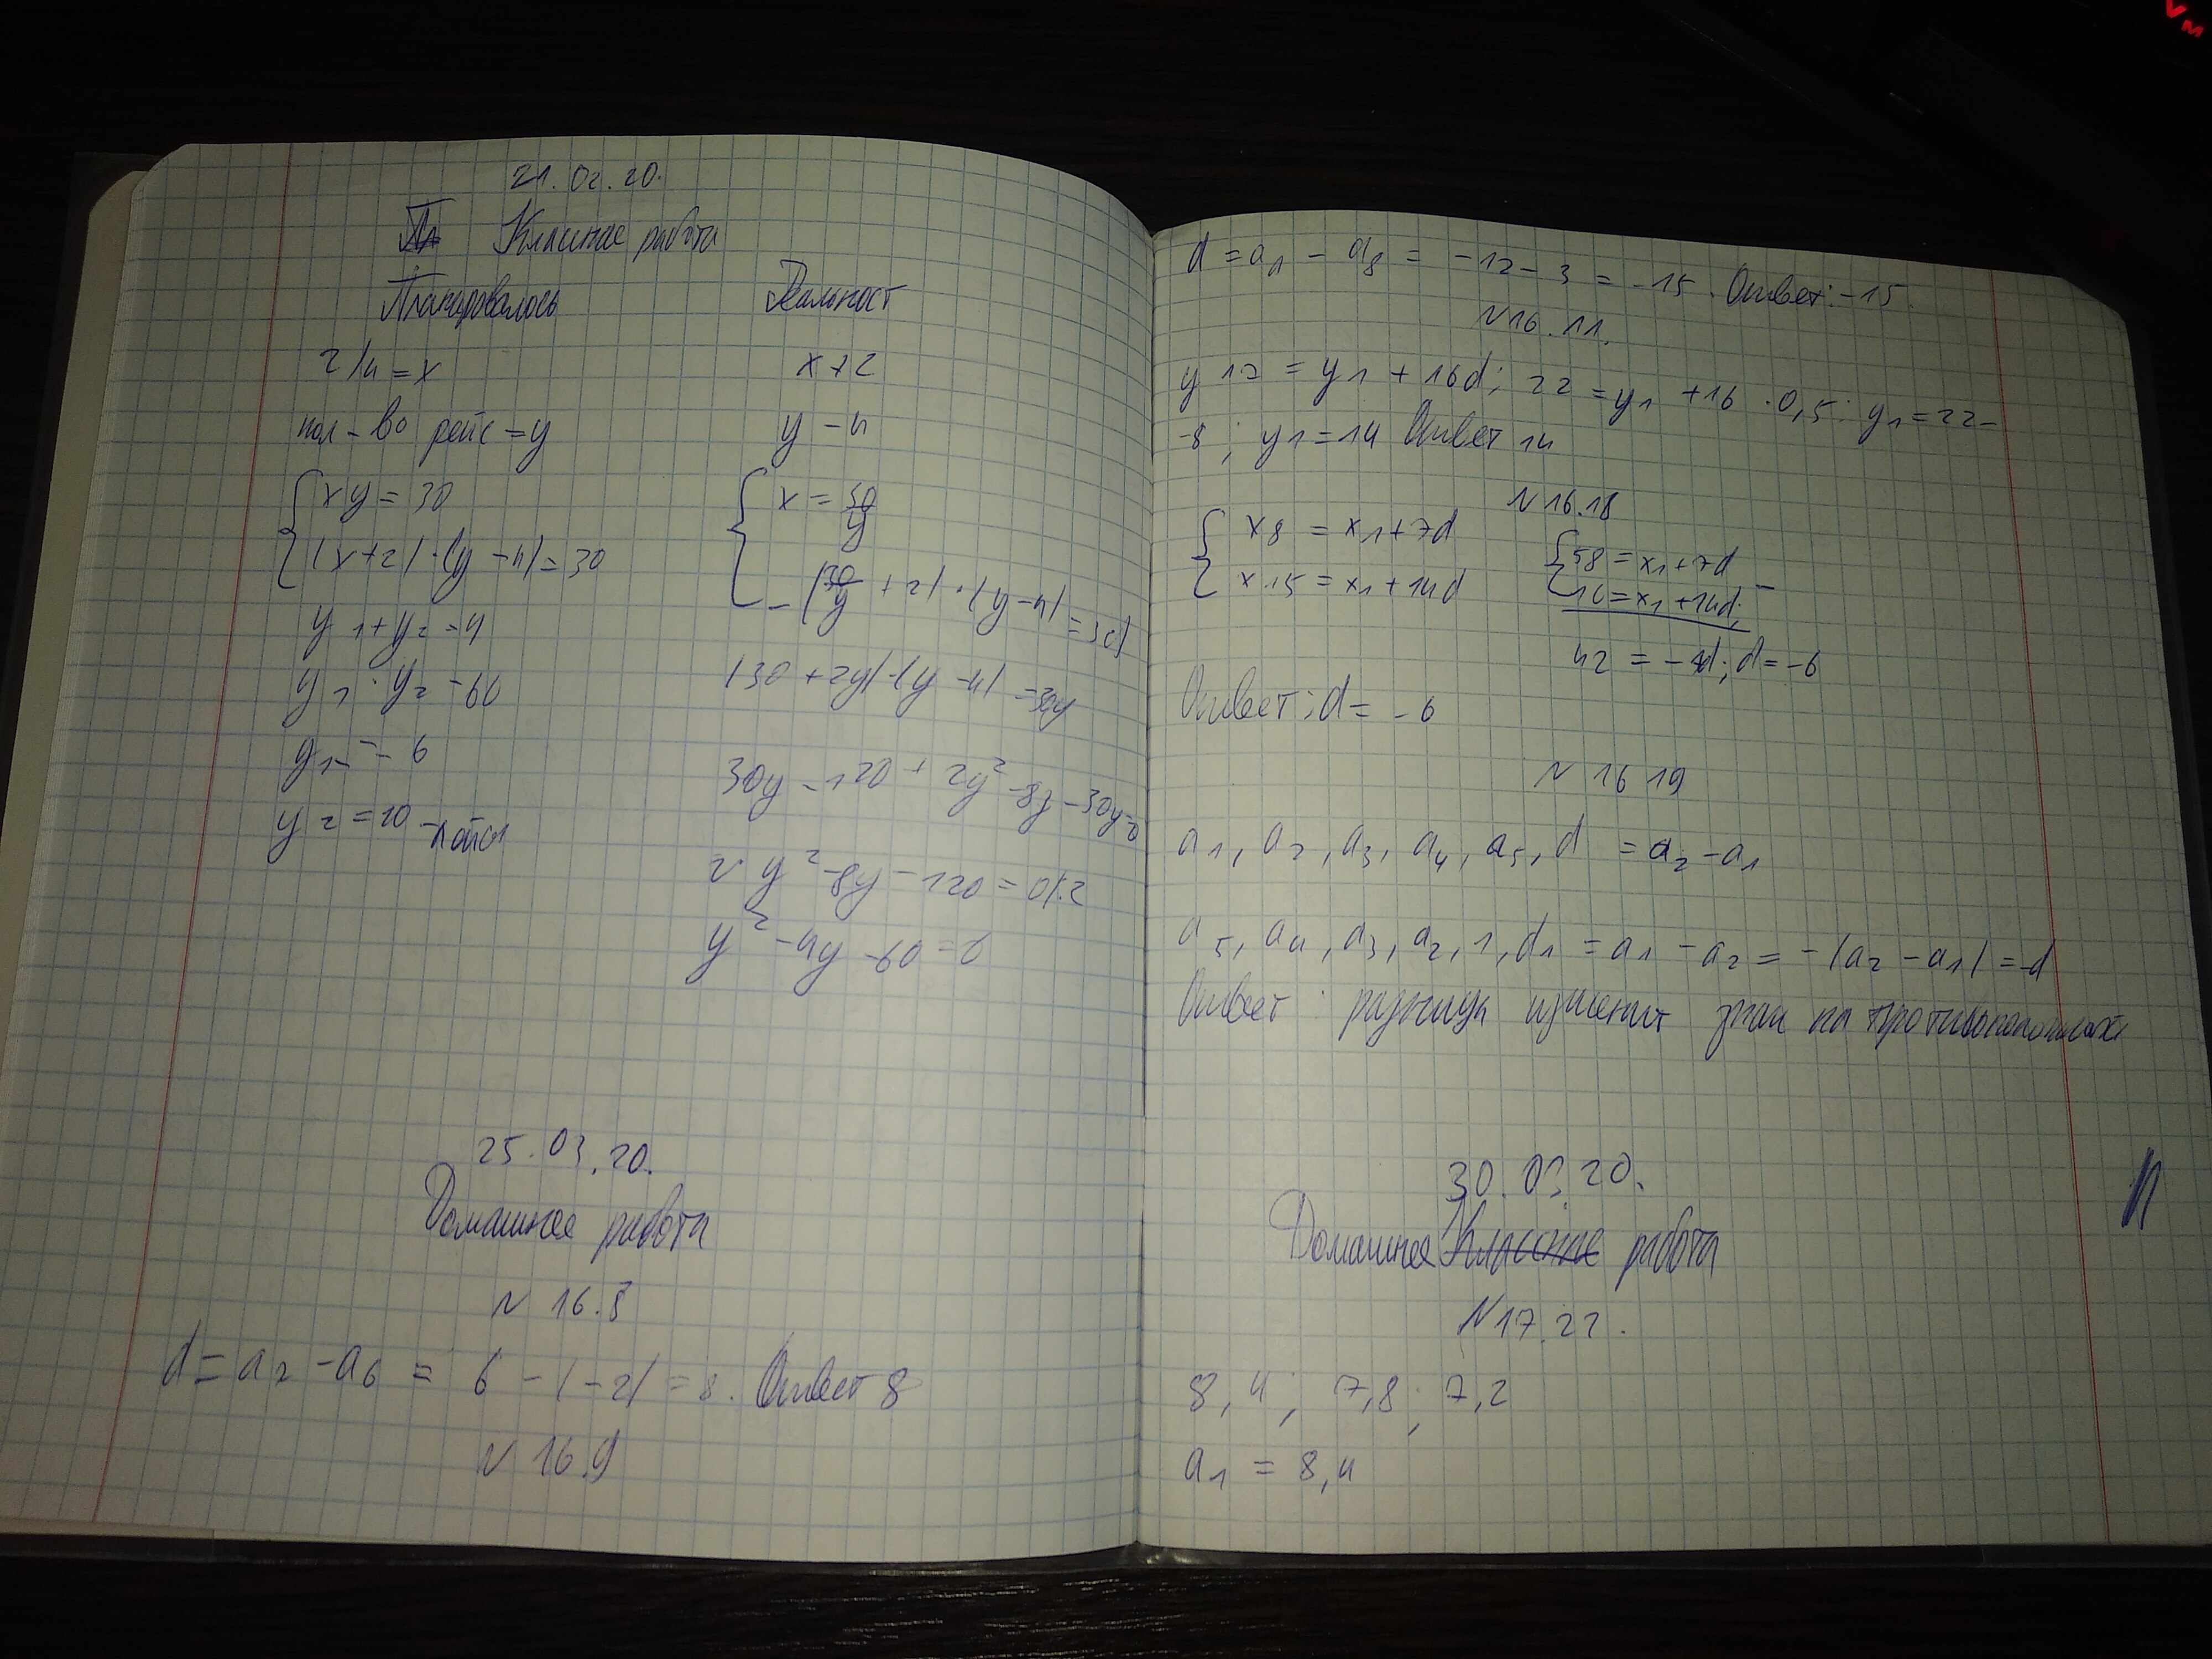 21.02.20.
Классная работа
Планировалось Реальност
2/4 = x x+2
кол-во рейс = y y-4
xy = 30 x = 30/y
(x+2)·(y-4)=30 (30/y + 2)·(y-4)=30
y1+y2=4
(30+2y)·(y-4)=30y
y1·y2=-60
y1=-6
30y-120+2y²-8y-30y=0
y2=10
2y²-8y-120=0 |:2
y²-4y-60=0
25.03.20.
Домашнее работа
N 16.3
d = a2 - a6 = 6-(-2) = 8. Ответ 8
N 16.9
d = a1 - a8 = -12-3 = -15. Ответ: -15.
N16.11.
y17 = y1 + 16d; 22 = y1 + 16·0,5; y1=22-
-8; y1=14 Ответ 14
N16.18
x8 = x1+7d 58 = x1+7d
x15 = x1+14d 16 = x1+14d;
42 = -7d; d=-6
Ответ: d = -6
N 16 19
a1, a2, a3, a4, a5, d = a2-a1
a5, a4, a3, a2, 1, d1 = a1 - a2 = -(a2-a1) = -d
Ответ: разница изменит знак на противоположн
30.03.20.
Домашнее Классное работа
N17.22.
8,4; 7,8; 7,2
a1 = 8,4